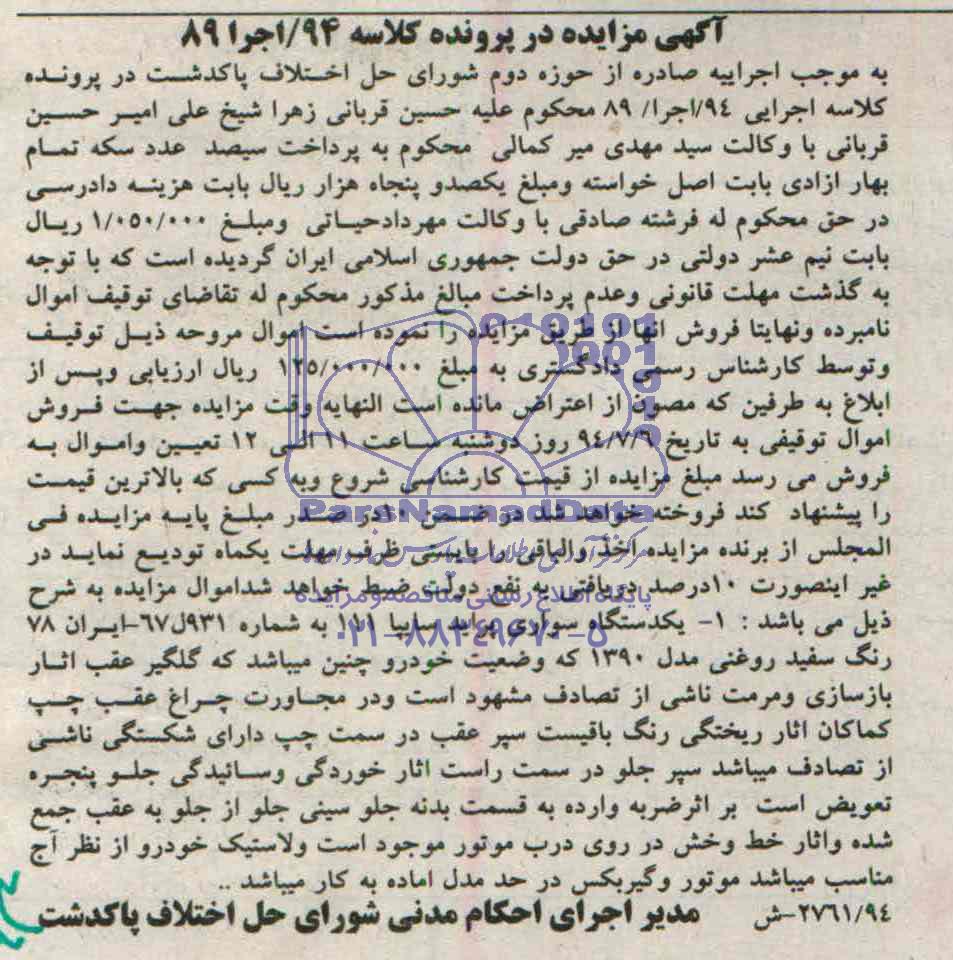 آگهی مزایده در پرونده کلاسه ۹۴/اجرا ۸۹
به موجب اجراییه صادره از حوزه دوم شورای حل اختلاف پاکدشت در پرونده
کلاسه اجرایی ۹٤/اجرا/ ۸۹ محکوم علیه حسین قربانی زهرا شیخ علی امیر حسین
قربانی با وکالت سید مهدی میر کمالی محکوم به پرداخت سیصد عدد سکه تمام
بهار ازادی بابت اصل خواسته ومبلغ یکصدو پنجاه هزار ریال بابت هزینه دادرسی
در حق محکوم له فرشته صادقی با وکالت مهردادحیاتی ومبلغ ۱/۰۵۰/۰۰۰ ریال
بابت نیم عشر دولتی در حق دولت جمهوری اسلامی ایران گردیده است که با توجه
به گذشت مهلت قانونی وعدم پرداخت مبالغ مذکور محکوم له تقاضای توقیف اموال
نامبرده ونهایتا فروش انها از طریق مزایده را نموده است اموال مروحه ذیل توقیف
وتوسط کارشناس رسمی دادگستری به مبلغ ۱۲۵/۰۰۰/۰۰۰ ریال ارزیابی وپس از
ابلاغ به طرفین که مصون از اعتراض مانده است النهایه وقت مزایده جهت فروش
اموال توقیفی به تاریخ ۹٤/۷/٦ روز دوشنبه ساعت ۱۱ الی ۱۲ تعیین واموال به
فروش می رسد مبلغ مزایده از قیمت کارشناسی شروع وبه کسی که بالاترین قیمت
را پیشنهاد کند فروخته خواهد شد در ضمن ۱۰در صدر مبلغ پایه مزایده فی
المجلس از برنده مزایده اخذ والباقی را بایستی ظرف مهلت یکماه تودیع نماید در
غیر اینصورت ۱۰درصد دریافتی به نفع دولت ضبط خواهد شداموال مزایده به شرح
ذیل می باشد : ۱- یکدستگاه سواری پراید سایپا ۱۱۱ به شماره ۹۳۱ل۶۷-ایران ۷۸
رنگ سفید روغنی مدل ۱۳۹۰ که وضعیت خودرو چنین میباشد که گلگیر عقب اثار
بازسازی ومرمت ناشی از تصادف مشهود است ودر مجاورت چراغ عقب چپ
کماکان اثار ریختگی رنگ باقیست سپر عقب در سمت چپ دارای شکستگی ناشی
از تصادف میباشد سپر جلو در سمت راست اثار خوردگی وسائیدگی جلو پنجره
تعویض است بر اثرضربه وارده به قسمت بدنه جلو سینی جلو از جلو به عقب جمع
شده واثار خط وخش در روی درب موتور موجود است ولاستیک خودرو از نظر آج
مناسب میباشد موتور وگیربکس در حد مدل اماده به کار میباشد ..
۲۷٦۱/۹٤-ش مدیر اجرای احکام مدنی شورای حل اختلاف پاکدشت
ParsNamadData
پایگاه اطلاع رسانی مناقصه و مزایده
۰۲۱-۸۸۳۴۹۶۷۰-۵